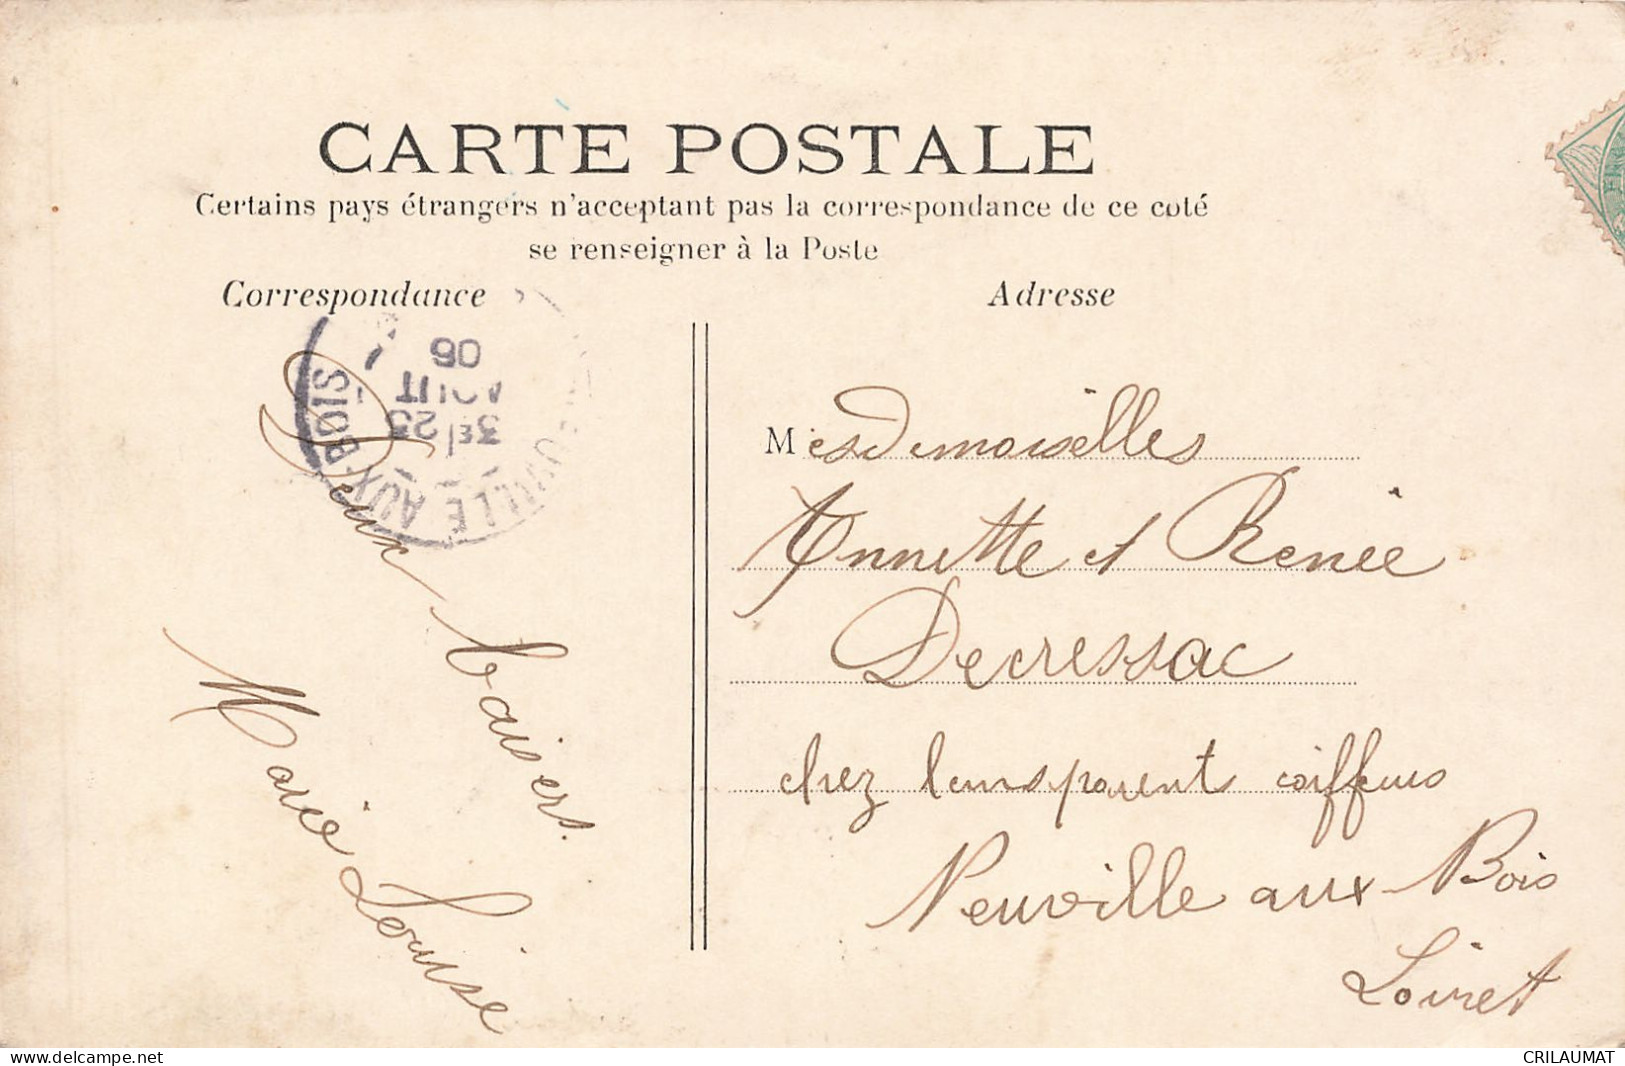 CARTE POSTALE
Certains pays étrangers n'acceptant pas la correspondance de ce coté
se renseigner à la Poste
Correspondance
Adresse
Deux baisers.
Marie Louise
MesDemoiselles
Annette et Renée
Decressac
chez leurs parents coiffeurs
Neuville aux Bois
Loiret
VILLE AUX-BOIS
3E 25
AOUT
06
www.delcampe.net
CRILAUMAT